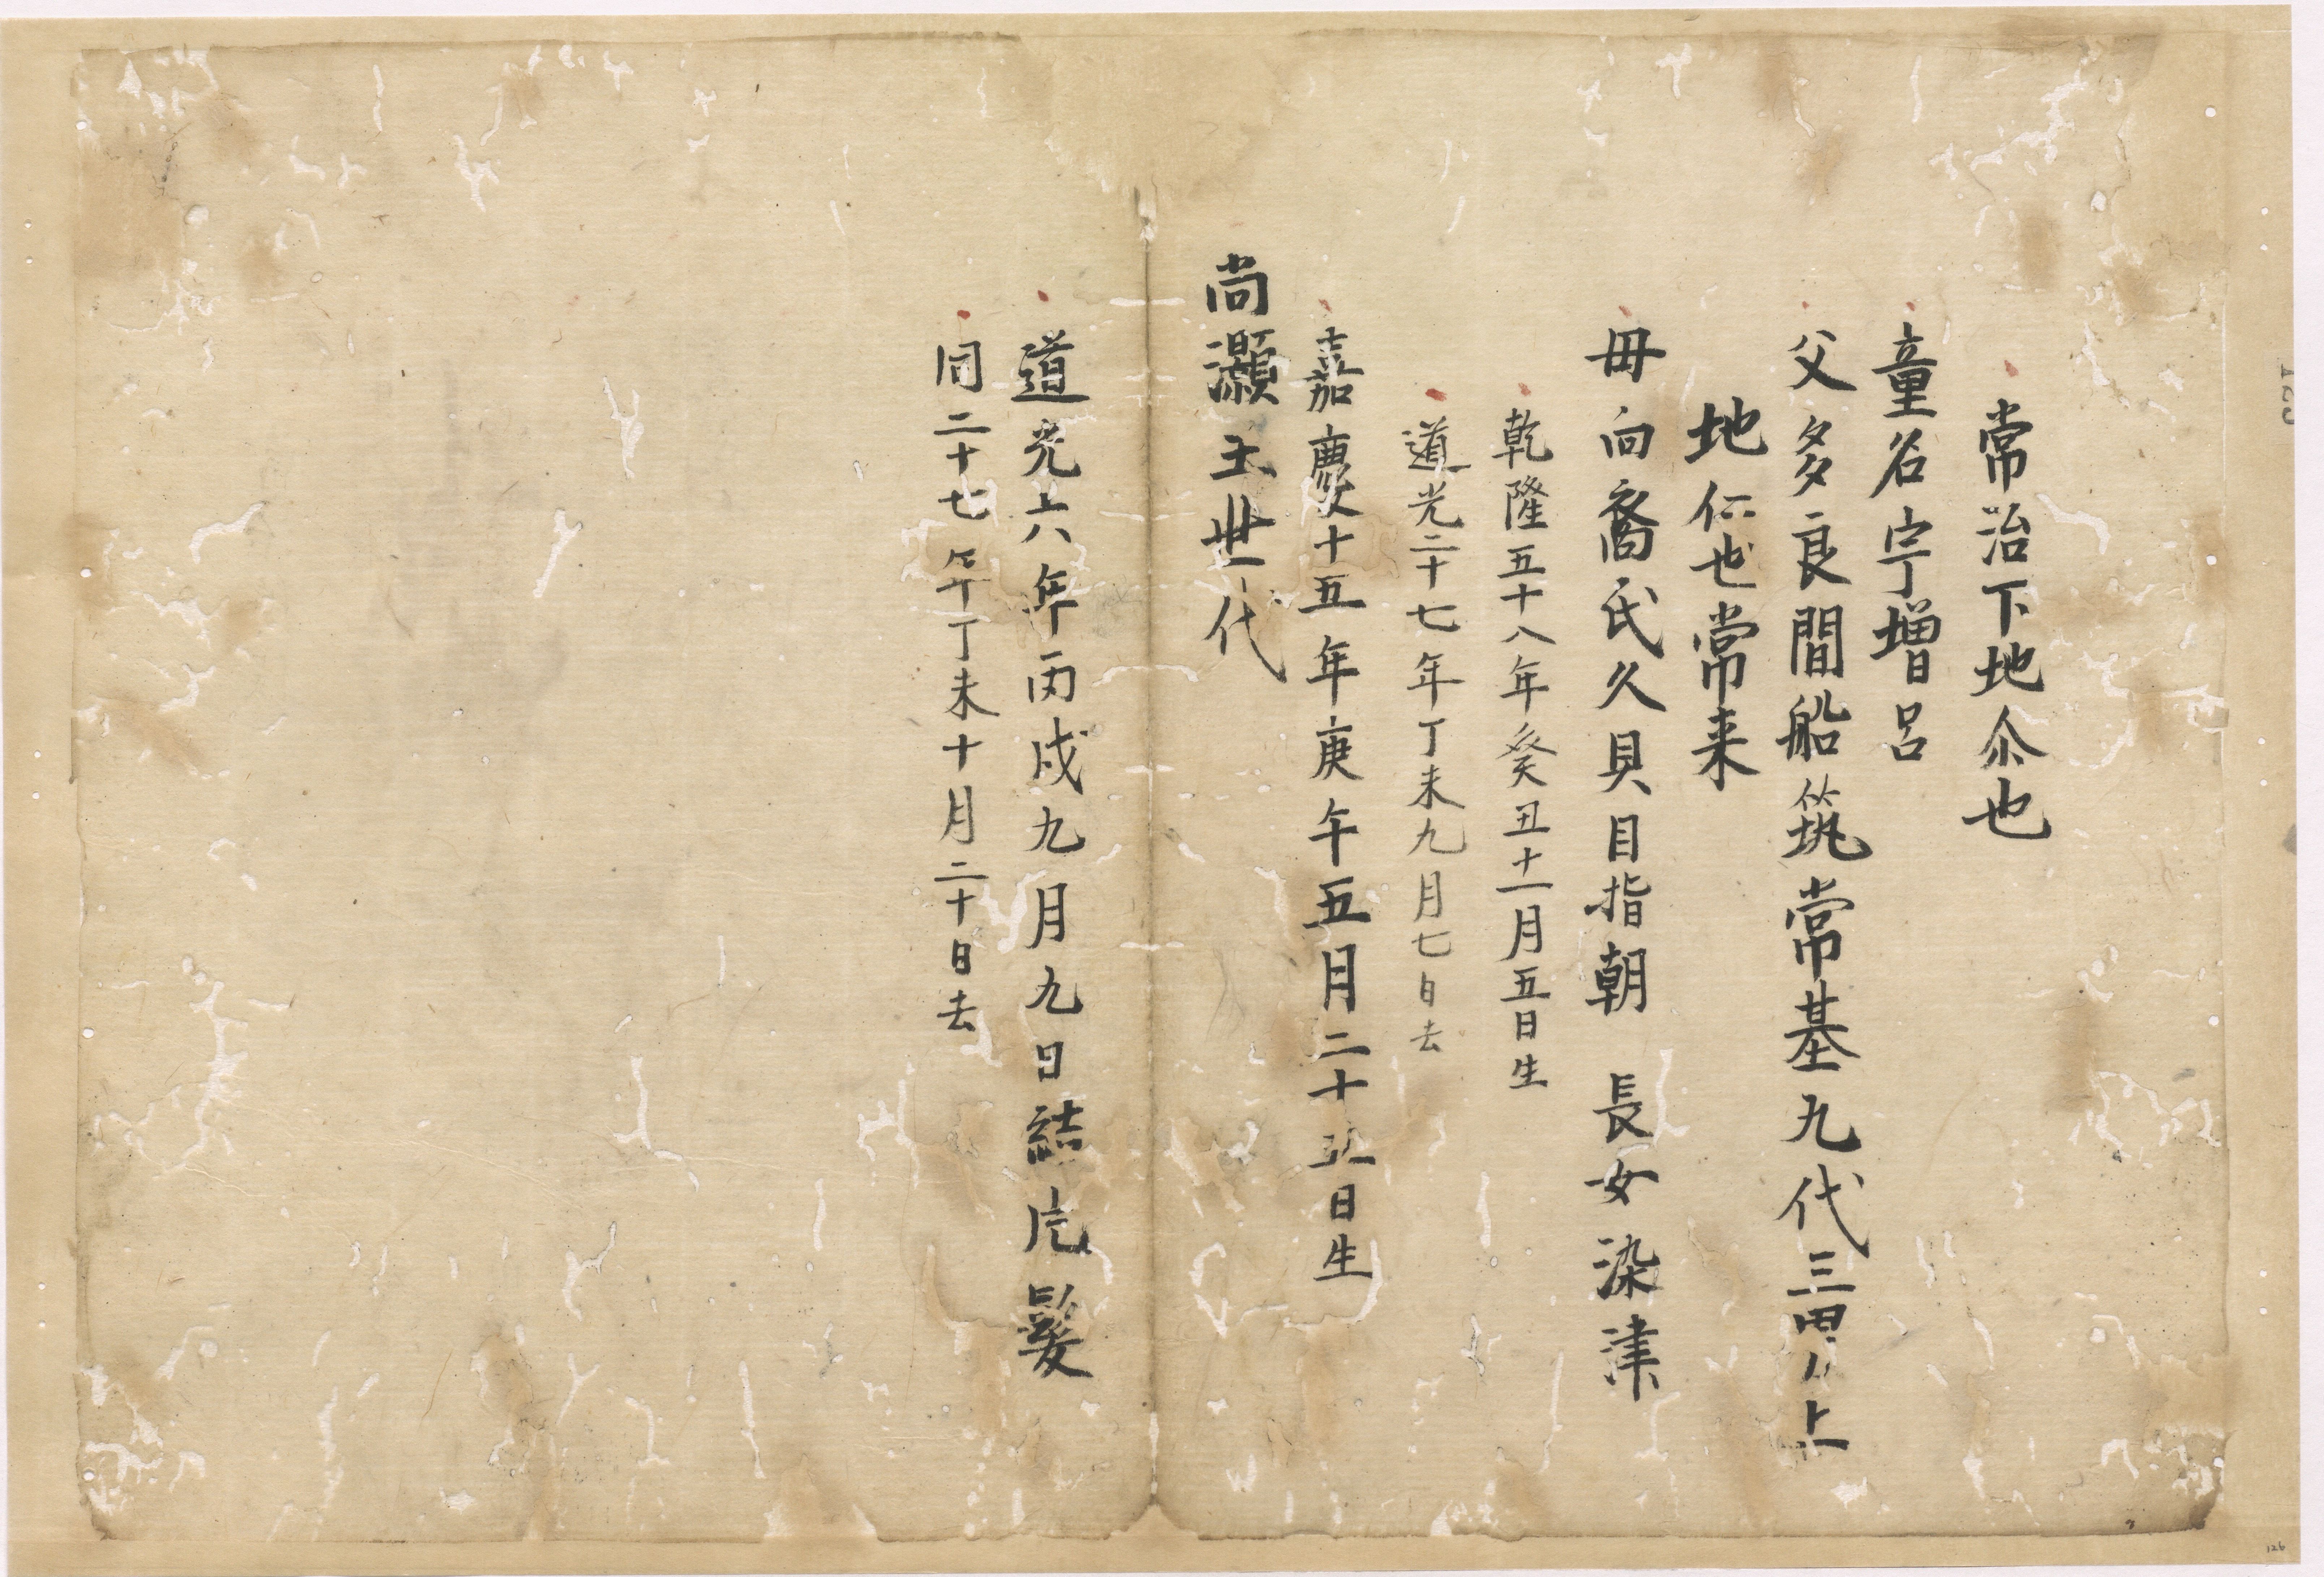 常治下地尒也
童名宇増呂
父多良間船筑常基九代三男上
地仁也常来
毋向裔氏久貝目指朝 長女染津
乾隆五十八年癸丑十一月五日生
道光二十七年丁未九月七日去
嘉慶十五年庚午五月二十五日生
尚灝王世代
道光六年丙戌九月九日結片髪
同二十七年丁未十月二十日去
126